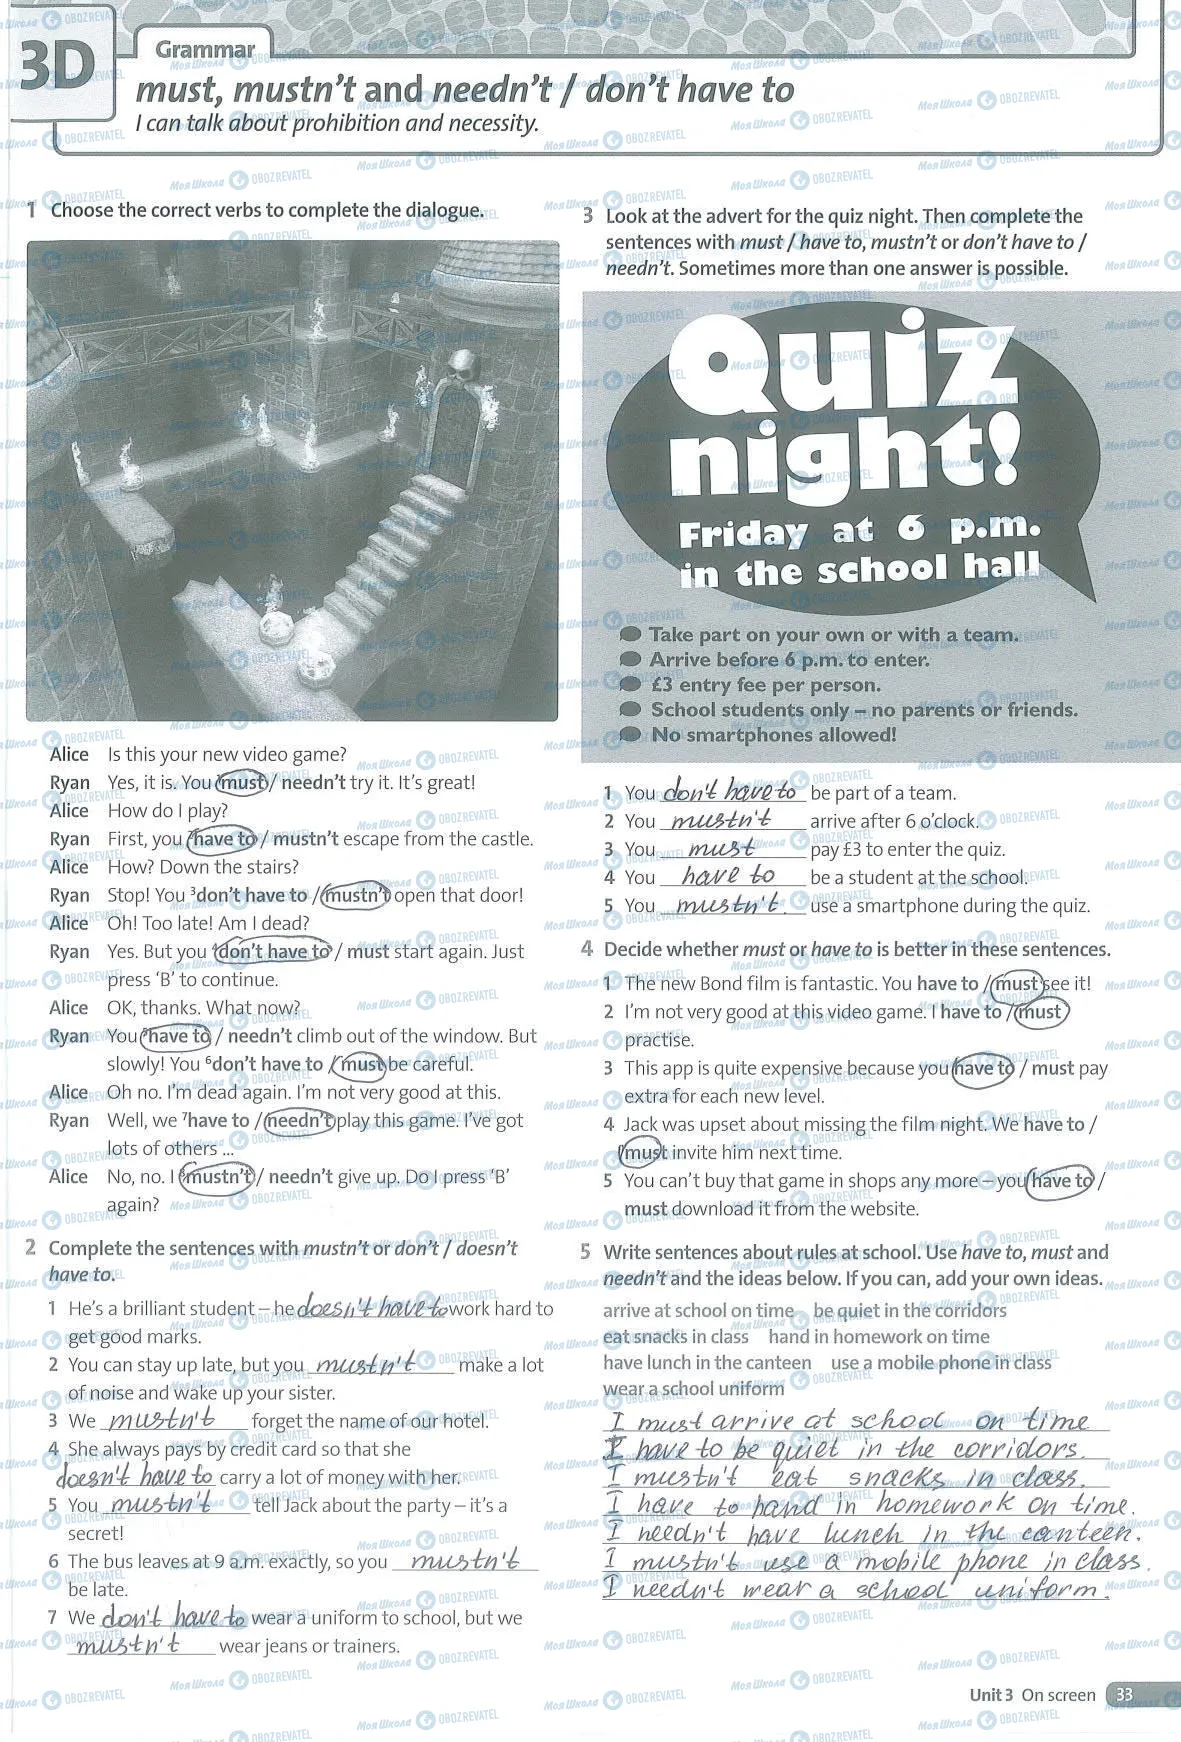 3D
Grammar
must, mustn't and needn't / don't have to
I can talk about prohibition and necessity.
1 Choose the correct verbs to complete the dialogue.
Alice Is this your new video game?
Ryan Yes, it is. You ¹must / needn't try it. It's great!
Alice How do I play?
Ryan First, you ²have to / mustn't escape from the castle.
Alice How? Down the stairs?
Ryan Stop! You ³don't have to / mustn't open that door!
Alice Oh! Too late! Am I dead?
Ryan Yes. But you ⁴don't have to / must start again. Just
press 'B' to continue.
Alice OK, thanks. What now?
Ryan You ⁵have to / needn't climb out of the window. But
slowly! You ⁶don't have to / must be careful.
Alice Oh no. I'm dead again. I'm not very good at this.
Ryan Well, we ⁷have to / needn't play this game. I've got
lots of others ...
Alice No, no. I ⁸mustn't / needn't give up. Do I press 'B'
again?
2 Complete the sentences with mustn't or don't / doesn't
have to.
1 He's a brilliant student – he doesn't have to work hard to
get good marks.
2 You can stay up late, but you mustn't make a lot
of noise and wake up your sister.
3 We mustn't forget the name of our hotel.
4 She always pays by credit card so that she
doesn't have to carry a lot of money with her.
5 You mustn't tell Jack about the party – it's a
secret!
6 The bus leaves at 9 a.m. exactly, so you mustn't
be late.
7 We don't have to wear a uniform to school, but we
mustn't wear jeans or trainers.
3 Look at the advert for the quiz night. Then complete the
sentences with must / have to, mustn't or don't have to /
needn't. Sometimes more than one answer is possible.
Quiz
night!
Friday at 6 p.m.
in the school hall
Take part on your own or with a team.
Arrive before 6 p.m. to enter.
£3 entry fee per person.
School students only – no parents or friends.
No smartphones allowed!
1 You don't have to be part of a team.
2 You mustn't arrive after 6 o'clock.
3 You must pay £3 to enter the quiz.
4 You have to be a student at the school.
5 You mustn't. use a smartphone during the quiz.
4 Decide whether must or have to is better in these sentences.
1 The new Bond film is fantastic. You have to / must see it!
2 I'm not very good at this video game. I have to / must
practise.
3 This app is quite expensive because you have to / must pay
extra for each new level.
4 Jack was upset about missing the film night. We have to /
must invite him next time.
5 You can't buy that game in shops any more – you have to /
must download it from the website.
5 Write sentences about rules at school. Use have to, must and
needn't and the ideas below. If you can, add your own ideas.
arrive at school on time be quiet in the corridors
eat snacks in class hand in homework on time
have lunch in the canteen use a mobile phone in class
wear a school uniform
I must arrive at school on time
I have to be quiet in the corridors.
I mustn't eat snacks in class.
I have to hand in homework on time.
I needn't have lunch in the canteen.
I mustn't use a mobile phone in class.
I needn't wear a school uniform.
Unit 3 On screen 33
Моя Школа OBOZREVATEL